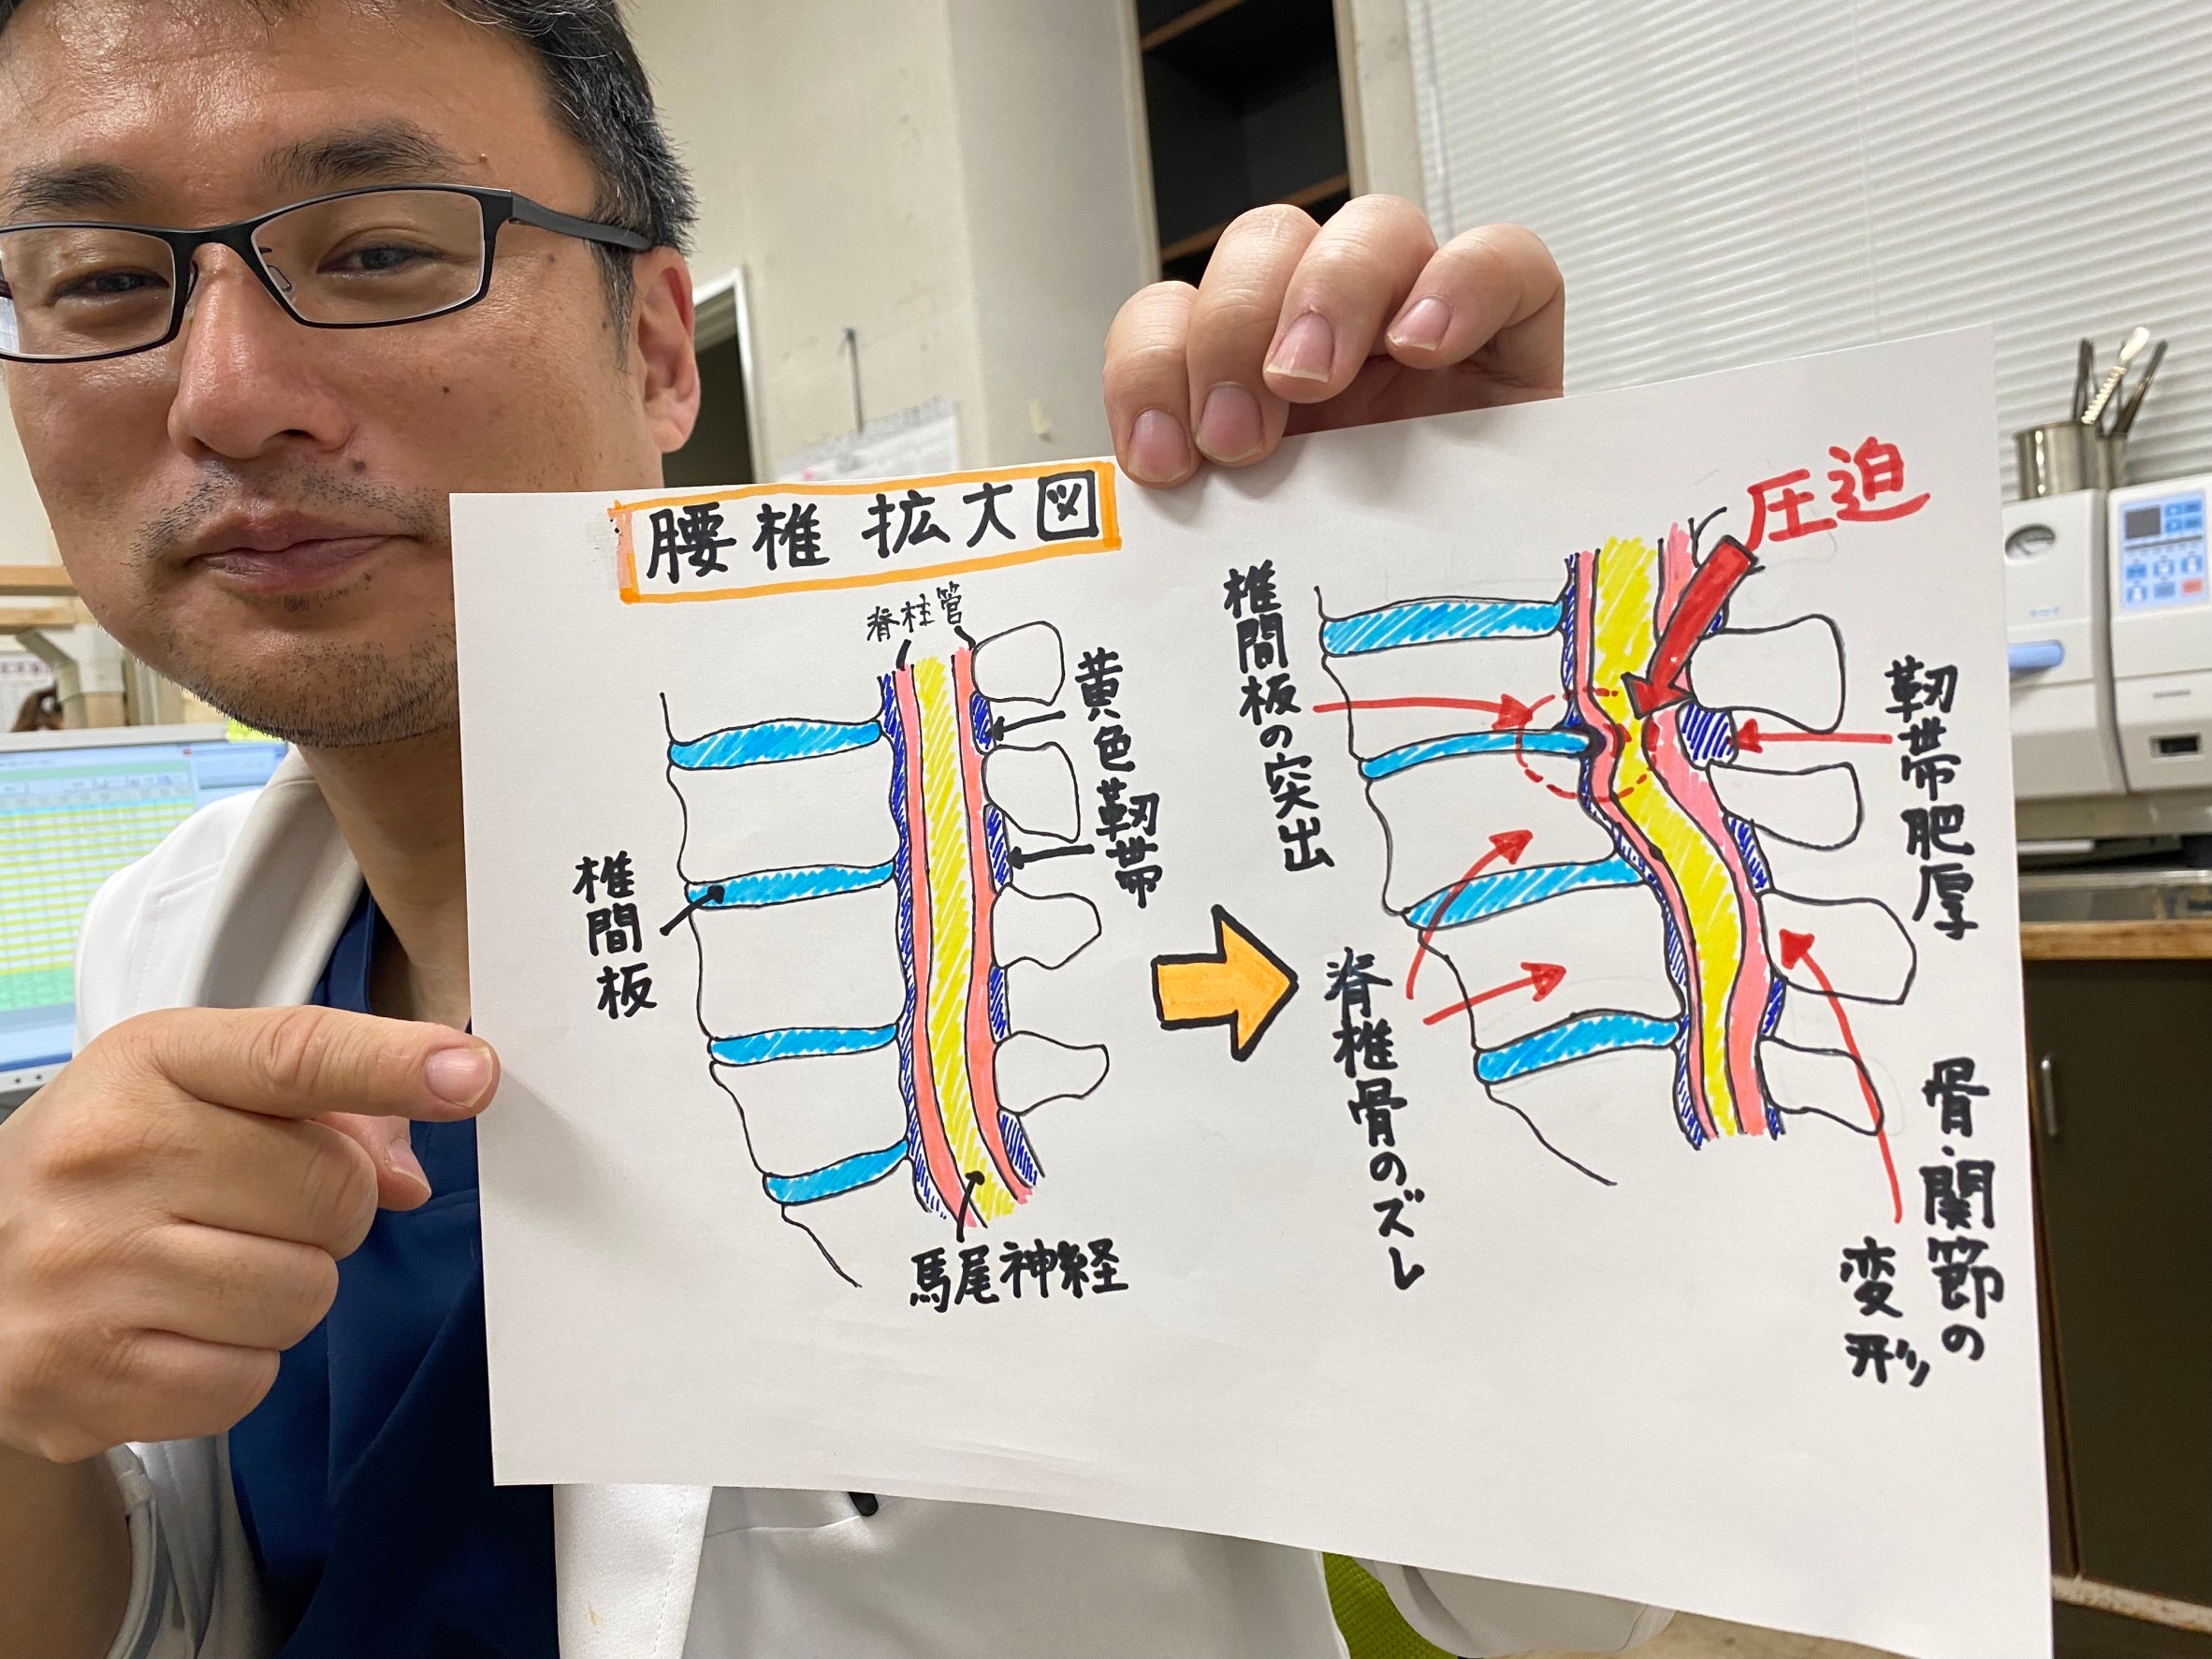 腰椎拡大図
脊柱管
黄色靭帯
椎間板
馬尾神経
圧迫
椎間板の突出
靭帯肥厚
脊椎骨のズレ
骨・関節の
変形